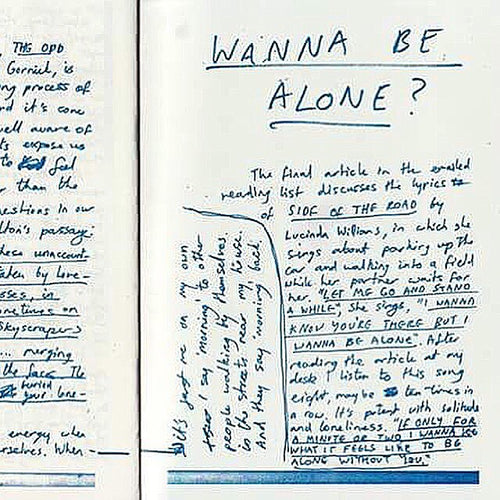 THE ODD
Gornick, is
ng process of
nd it's conc
well aware of
ts expose us
to feel
r than the
uestions in our
lton's passage:
these unaccount-
taken by lone-
sses, in
ometimes on
skyscrapers
... merging
the face. The
buried
your lone-
energy when
rselves. When
WANNA BE
ALONE?
The final article in the emailed
reading list discusses the lyrics
of SIDE OF THE ROAD by
Lucinda Williams, in which she
sings about parking up the
car and walking into a field
while her partner waits for
her. "LET ME GO AND STAND
A WHILE", she sings, "I WANNA
KNOW YOU'RE THERE BUT I
WANNA BE ALONE". After
reading the article at my
desk I listen to this song
eight, maybe ten times in
a row. It's potent with solitude
and loneliness. "IF ONLY FOR
A MINUTE OR TWO I WANNA SEE
WHAT IT FEELS LIKE TO BE
ALONE WITHOUT YOU."
it's just me on my own
I say 'morning' to other
people walking by themselves
in the streets near my house.
And they say 'morning' back.